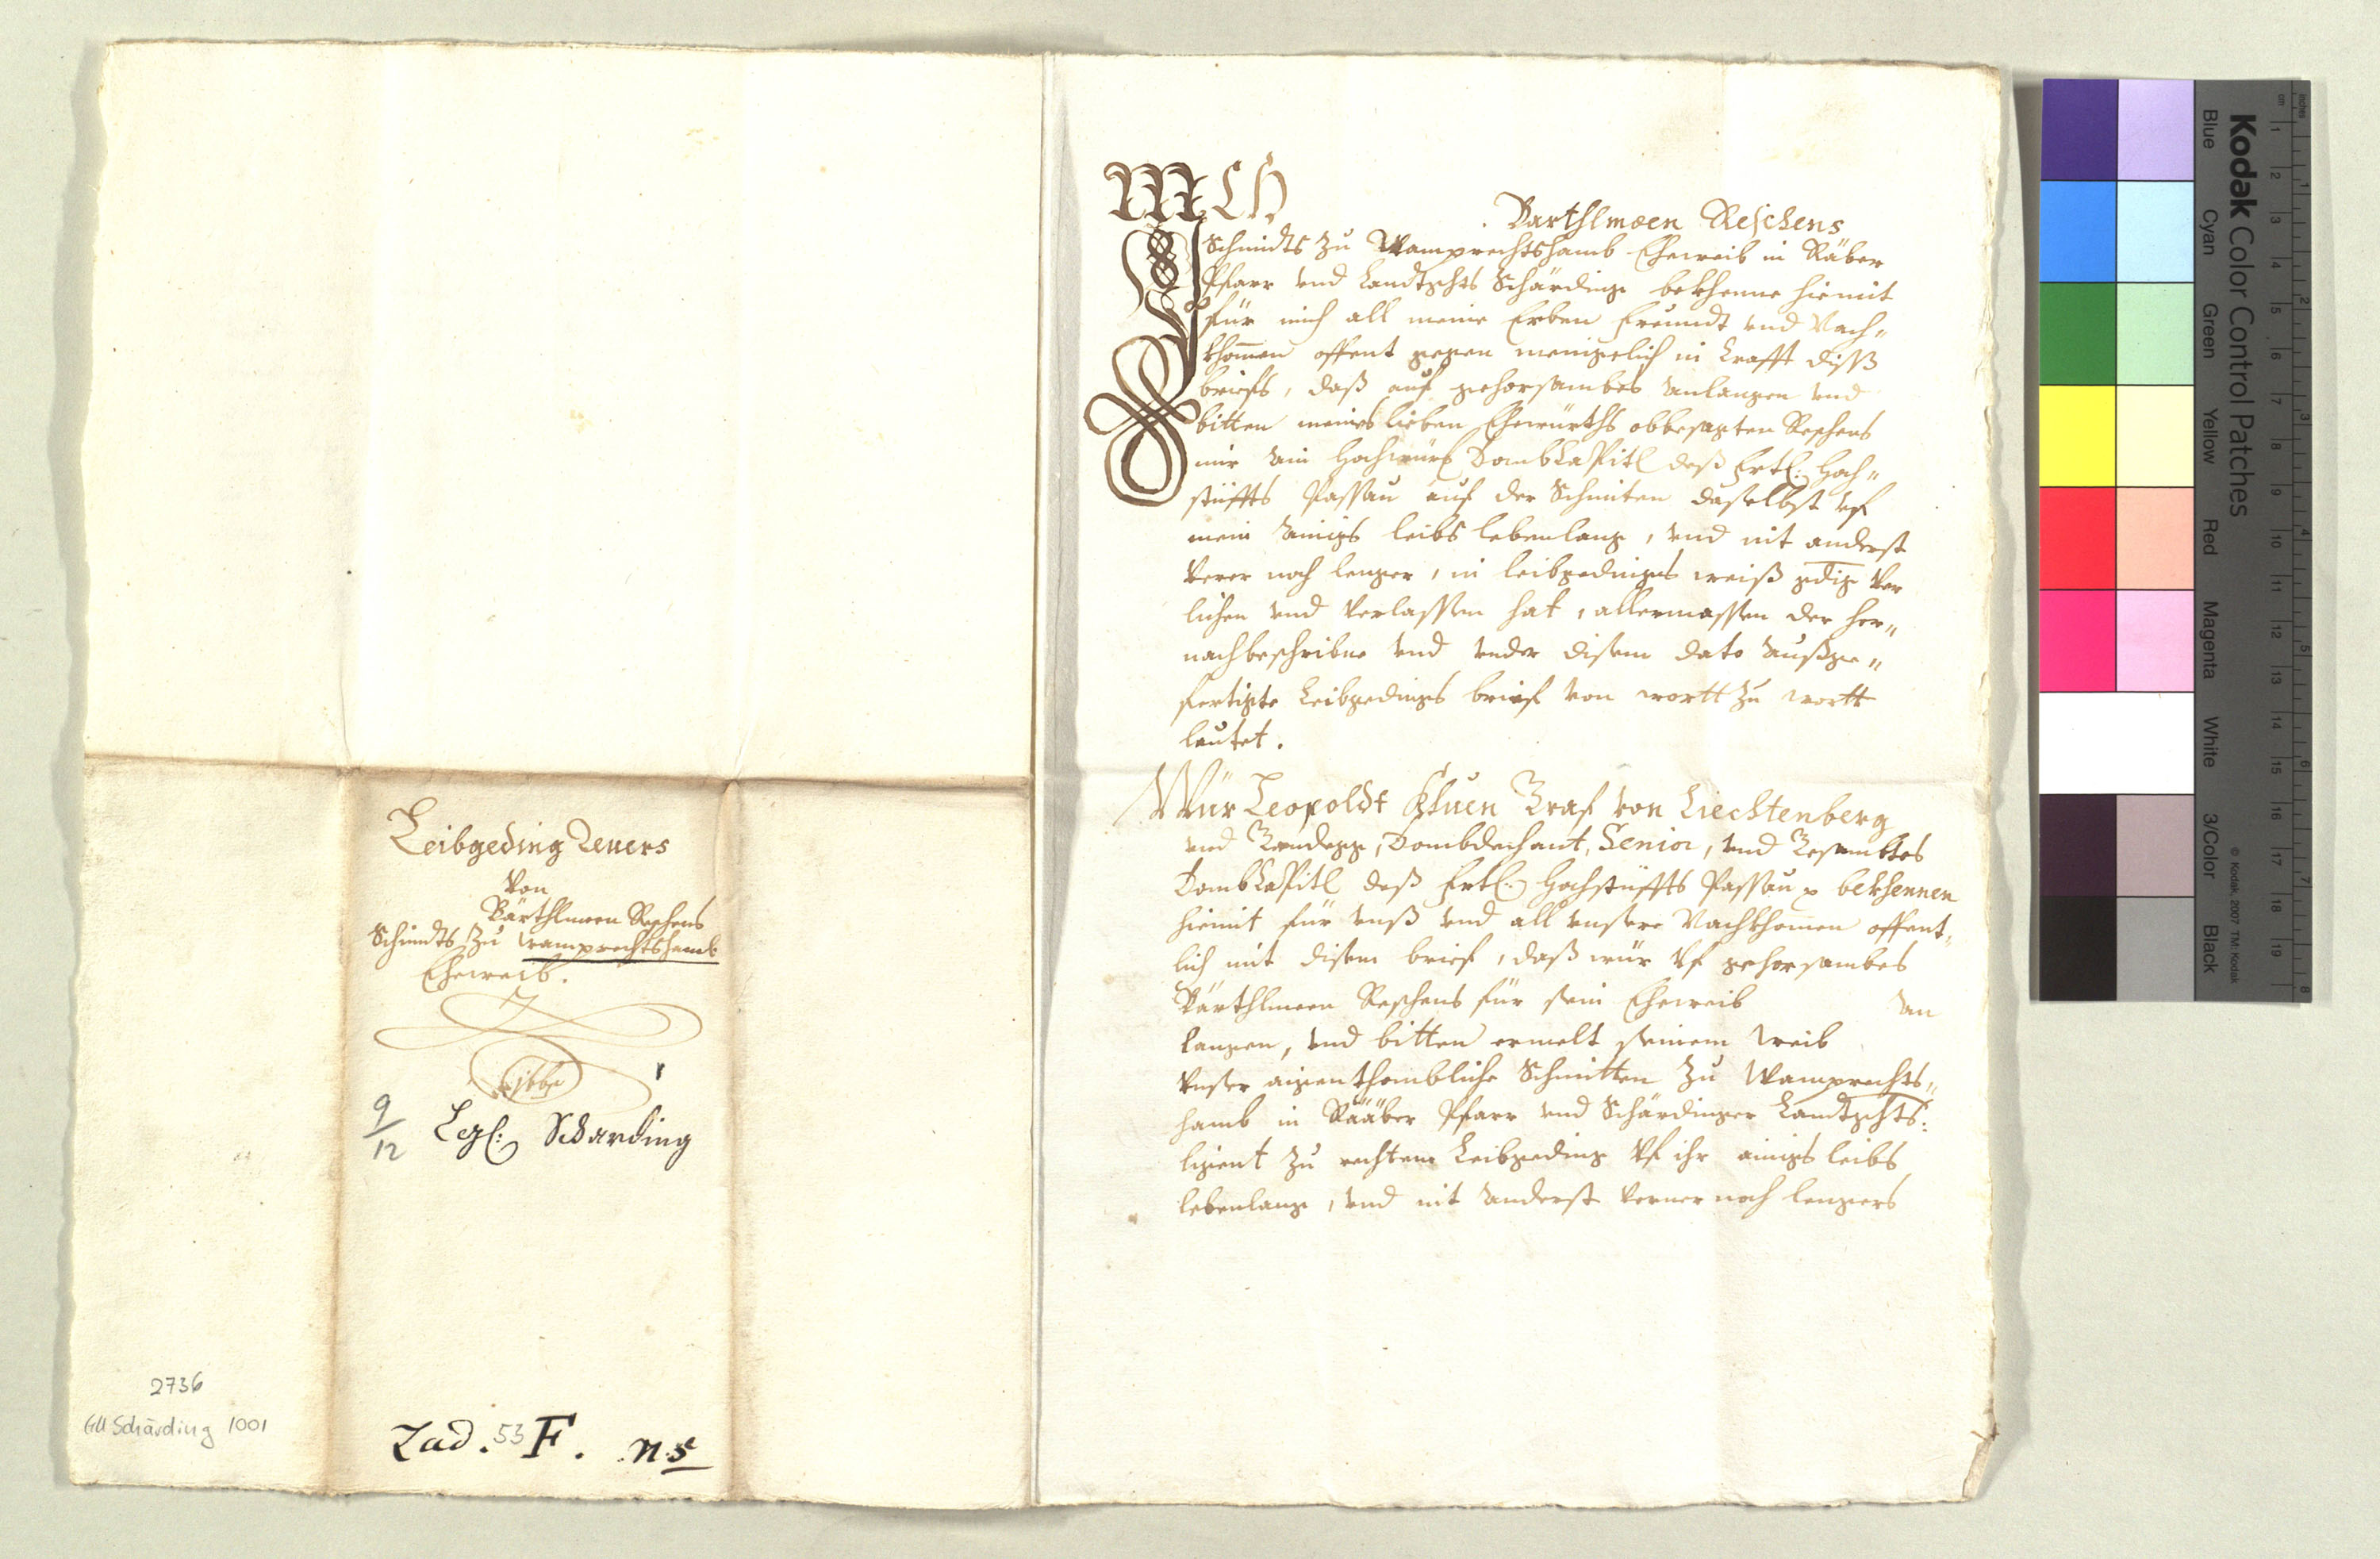 Leibgeding Revers
von
Bärthlmeen Reschens
Schmidts zu Wamprechtshamb
Eheweib.
9/12
Lgl: Schärding
2736
GU Schärding 1001
Lad. 53 F. n. 5
ICH
Barthlmaeen Reschens
Schmidts zu Wamprechtshamb Eheweib in Räber
Pfarr vnd Landtgehts Schärding bekhenne hiemit
für mich all meine Erben Freundt vnd Nach„
khomen offent gegen menigelich in krafft diss
briefs, daß auf gehorsambes anlangen vnd
bitten meines lieben Ehewürths obbesagten Reschens
mir ain Hochwürd DombCaPitl deß Frtl: Hoch„
stüffts Passau auf der Schmiten daselbst vf
mein ainigs leibs lebenlang, vnd nit anderst
verer noch lenger, in leibgedings weiß gdig ver
lichen vnd verlassen hat, allermassen der her„
nachbeschribne vnd vnder disem dato außge„
fertigte Leibgedings brief von wortt zu wortt
lautet.
Wür Leopoldt Khuen Graf von Liechtenberg
vnd Gandegg, Dombdechant, Senior, vnd Gesambtes
DombCaPitl deß Frtl: Hochstüffts Passau bekhennen
hiemit für vnß vnd all vnsere Nachkhomen offent„
lich mit disem brief, daß wür vf gehorsambes
Bärthlmeen Reschens für sein Eheweib an
langen, vnd bitten ermelt seinem weib
vnser aigenthombliche Schmitten zu Wamprechts„
hamb in Rääber Pfarr vnd Schärdinger Landtgehts:
ligent zu rechtem Leibgeding vf ihr ainigs leibs
lebenlang, vnd nit anderst verner noch lengers